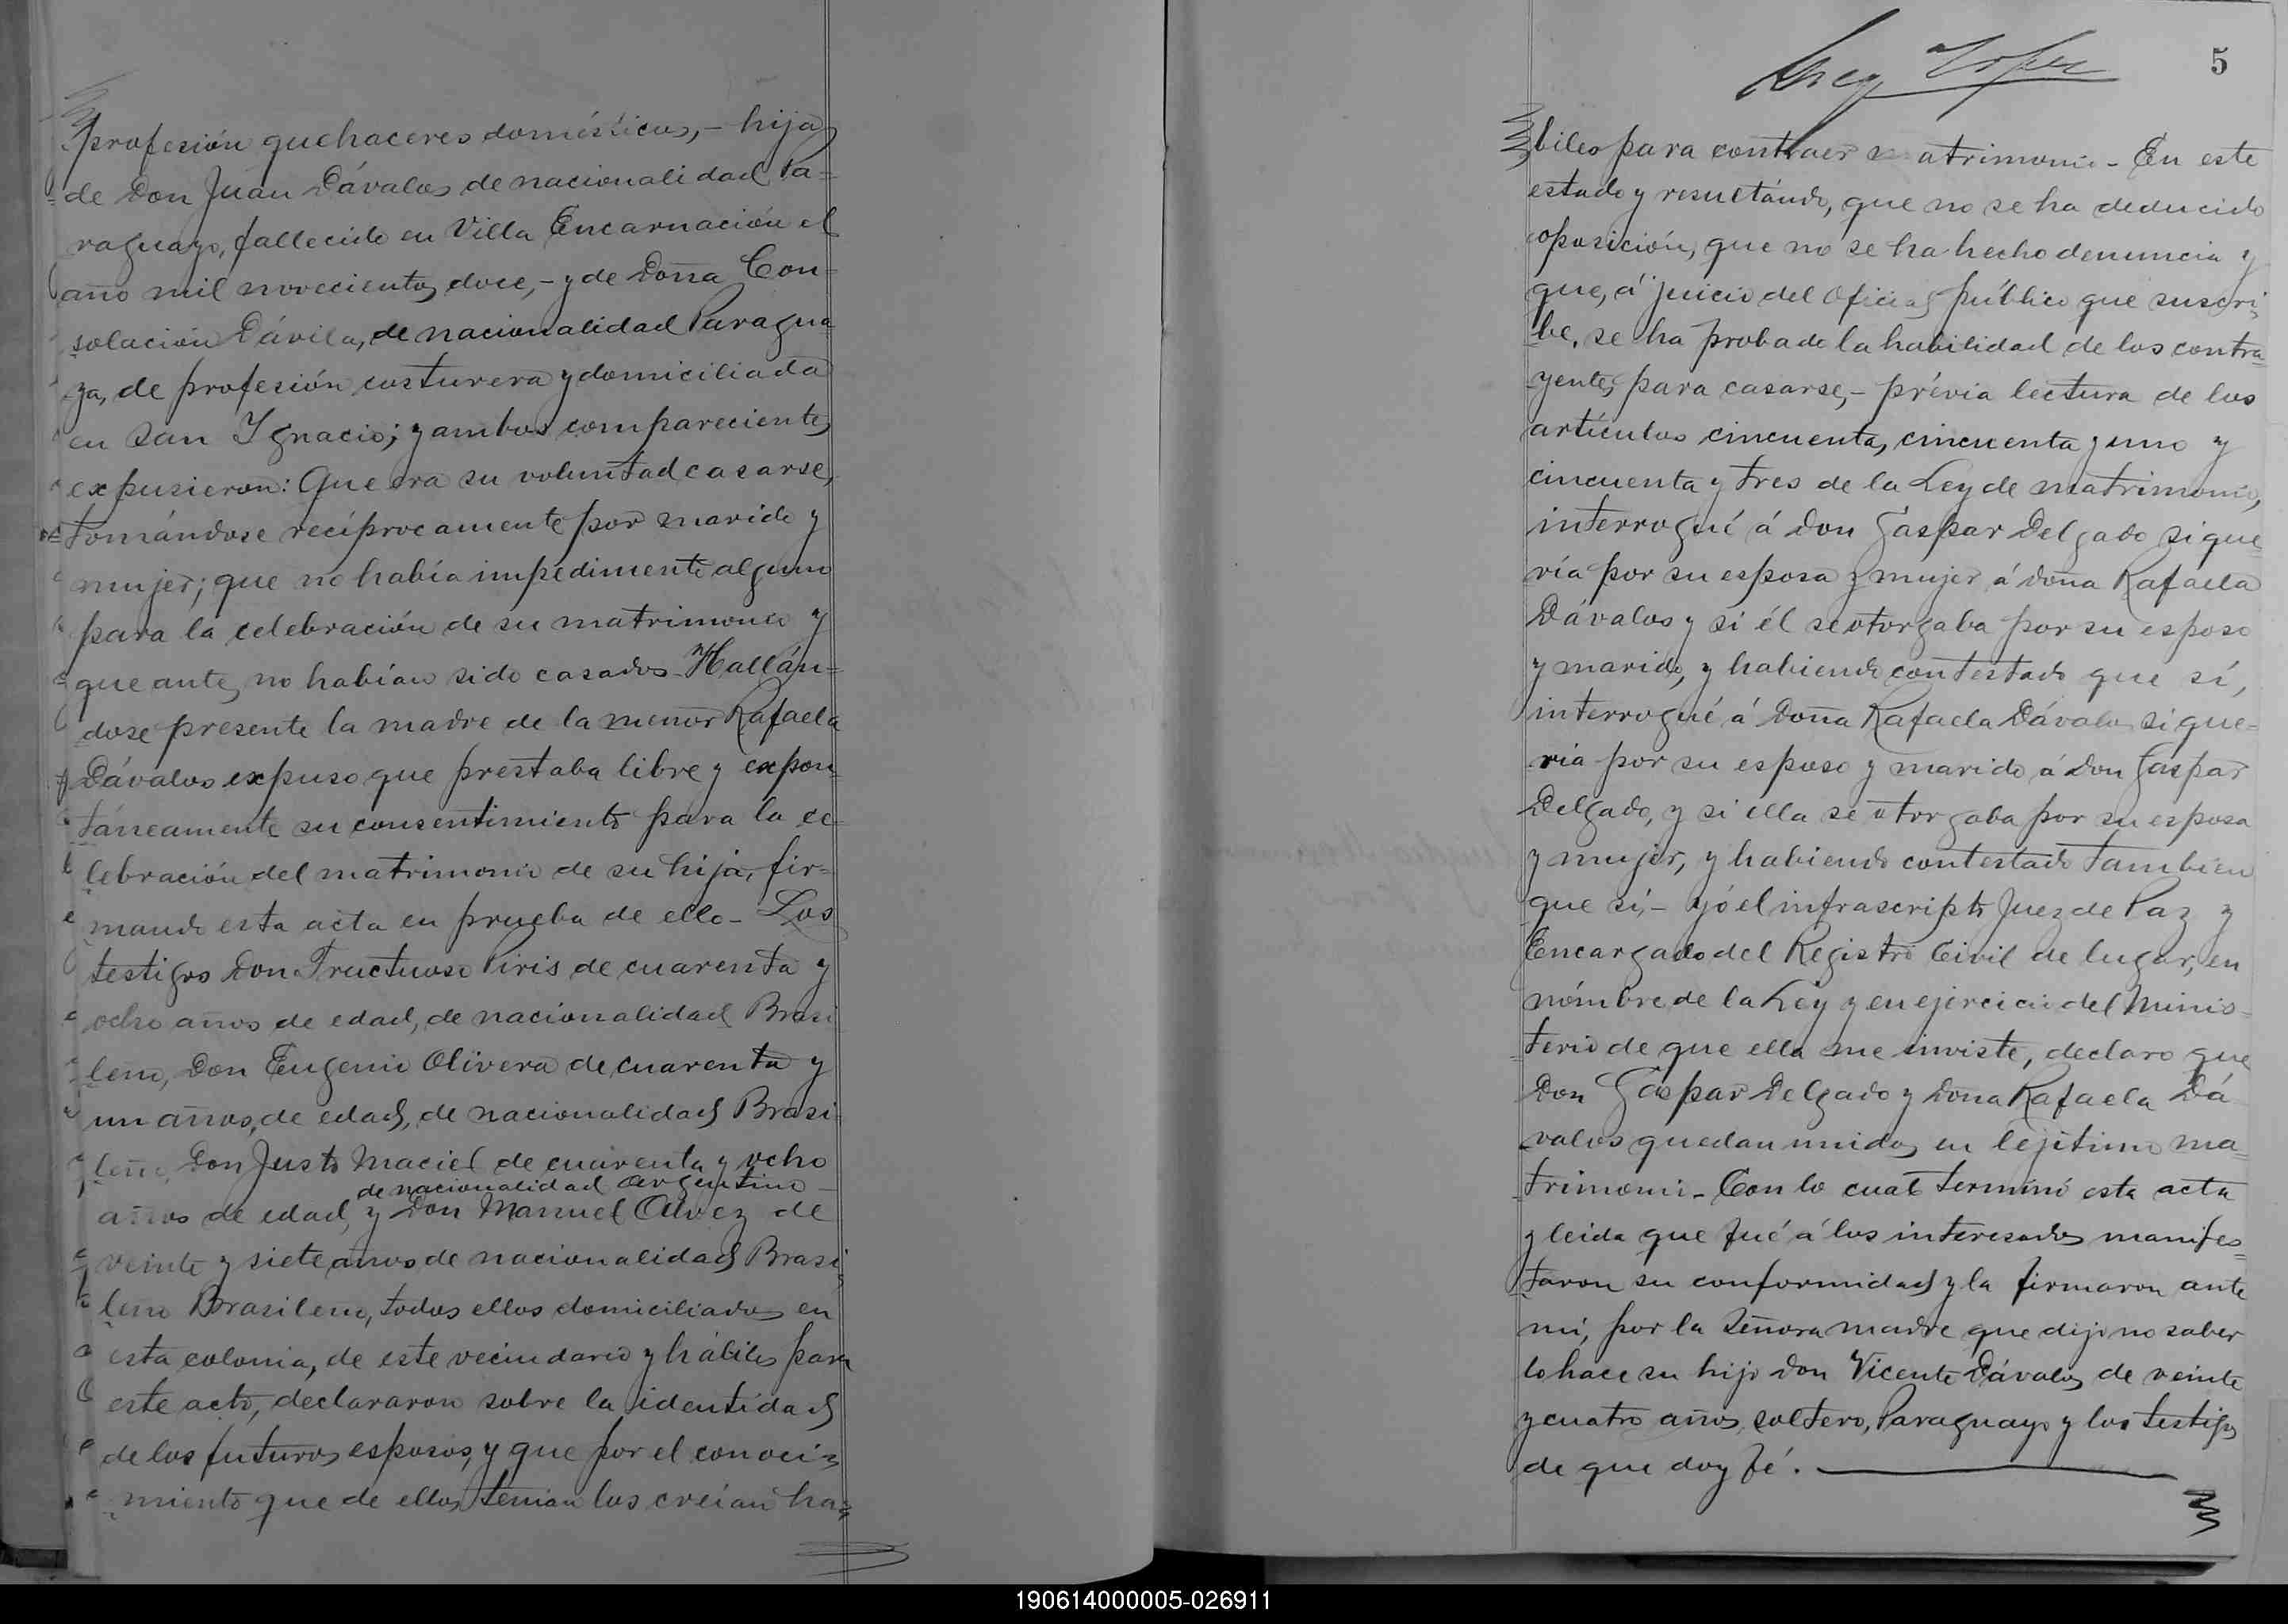 profesión quehaceres domésticos,- hija
de Don Juan Dávalos de nacionalidad Pa=
raguayo, fallecido en Villa Encarnación el
año mil novecientos doce,- y de Doña Con=
solación Dávila, de nacionalidad Paragua
ya, de profesión costurera y domiciliada
en San Ignacio; y ambos comparecientes
expusieron: Que era su voluntad casarse,
tomándose recíprocamente por marido y
mujer; que no había impedimento alguno
para la celebración de su matrimonio y
que antes no habían sido casados- Hallán=
dose presente la madre de la menor Rafaela
Dávalos expuso que prestaba libre y expon
táneamente su consentimiento para la ce
lebración del matrimonio de su hija, fir=
mando esta acta en prueba de ello- Los
testigos Don Fructuoso Piris de cuarenta y
ocho años de edad, de nacionalidad Brasi
leño, Don Eugenio Olivera de cuarenta y
un años, de edad, de nacionalidad Brasi
leño, Don Justo Maciel de cuarenta y ocho
de nacionalidad argentino
años de edad, y Don Manuel Alvez de
veinte y siete años de nacionalidad Brasi
leño Brasileño, todos ellos domiciliados en
esta colonia, de este vecindario y hábiles para
este acto, declararon sobre la identidad
de los futuros esposos, y que por el conoci=
miento que de ellos tenian los creían ha=
5
biles para contraer matrimonio- En este
estado y resultándo, que no se ha deducido
oposición, que no se ha hecho denuncia y
que, á juicio del oficial público que suscri=
be, se ha probado la habilidad de los contra=
yentes, para casarse,- prévia lectura de los
artículos cincuenta, cincuenta y uno y
cincuenta y tres de la Ley de matrimonio,
interrogué á Don Gaspar Delgado si que=
ría por su esposa y mujer á doña Rafaela
Dávalos y si él se otorgaba por su esposo
y marido, y habiendo contestado que sí,
interrogué á Doña Rafaela Dávalos si que=
ria por su esposo y marido á Don Gaspar
Delgado, y si ella se otorgaba por su esposa
y mujer, y habiendo contestado tambien
que sí,- yó el infrascripto Juez de Paz y
Encargado del Registro Civil de lugar, en
nómbre de la Ley y en ejercicio del Minis=
terio de que ella me inviste, declaro que
Don Gaspar Delgado y Doña Rafaela Dá
valos quedan unidos en lejítimo ma=
trimonio- Con lo cual terminó esta acta
y leida que fué á los interesados manifes=
taron su conformidad y la firmaron ante
mi, por la Señora madre que dijo no saber
lo hace su hijo Don Vicente Dávalos de veinte
y cuatro años, soltero, Paraguayo y los testigos
de que doy fé.
190614000005-026911